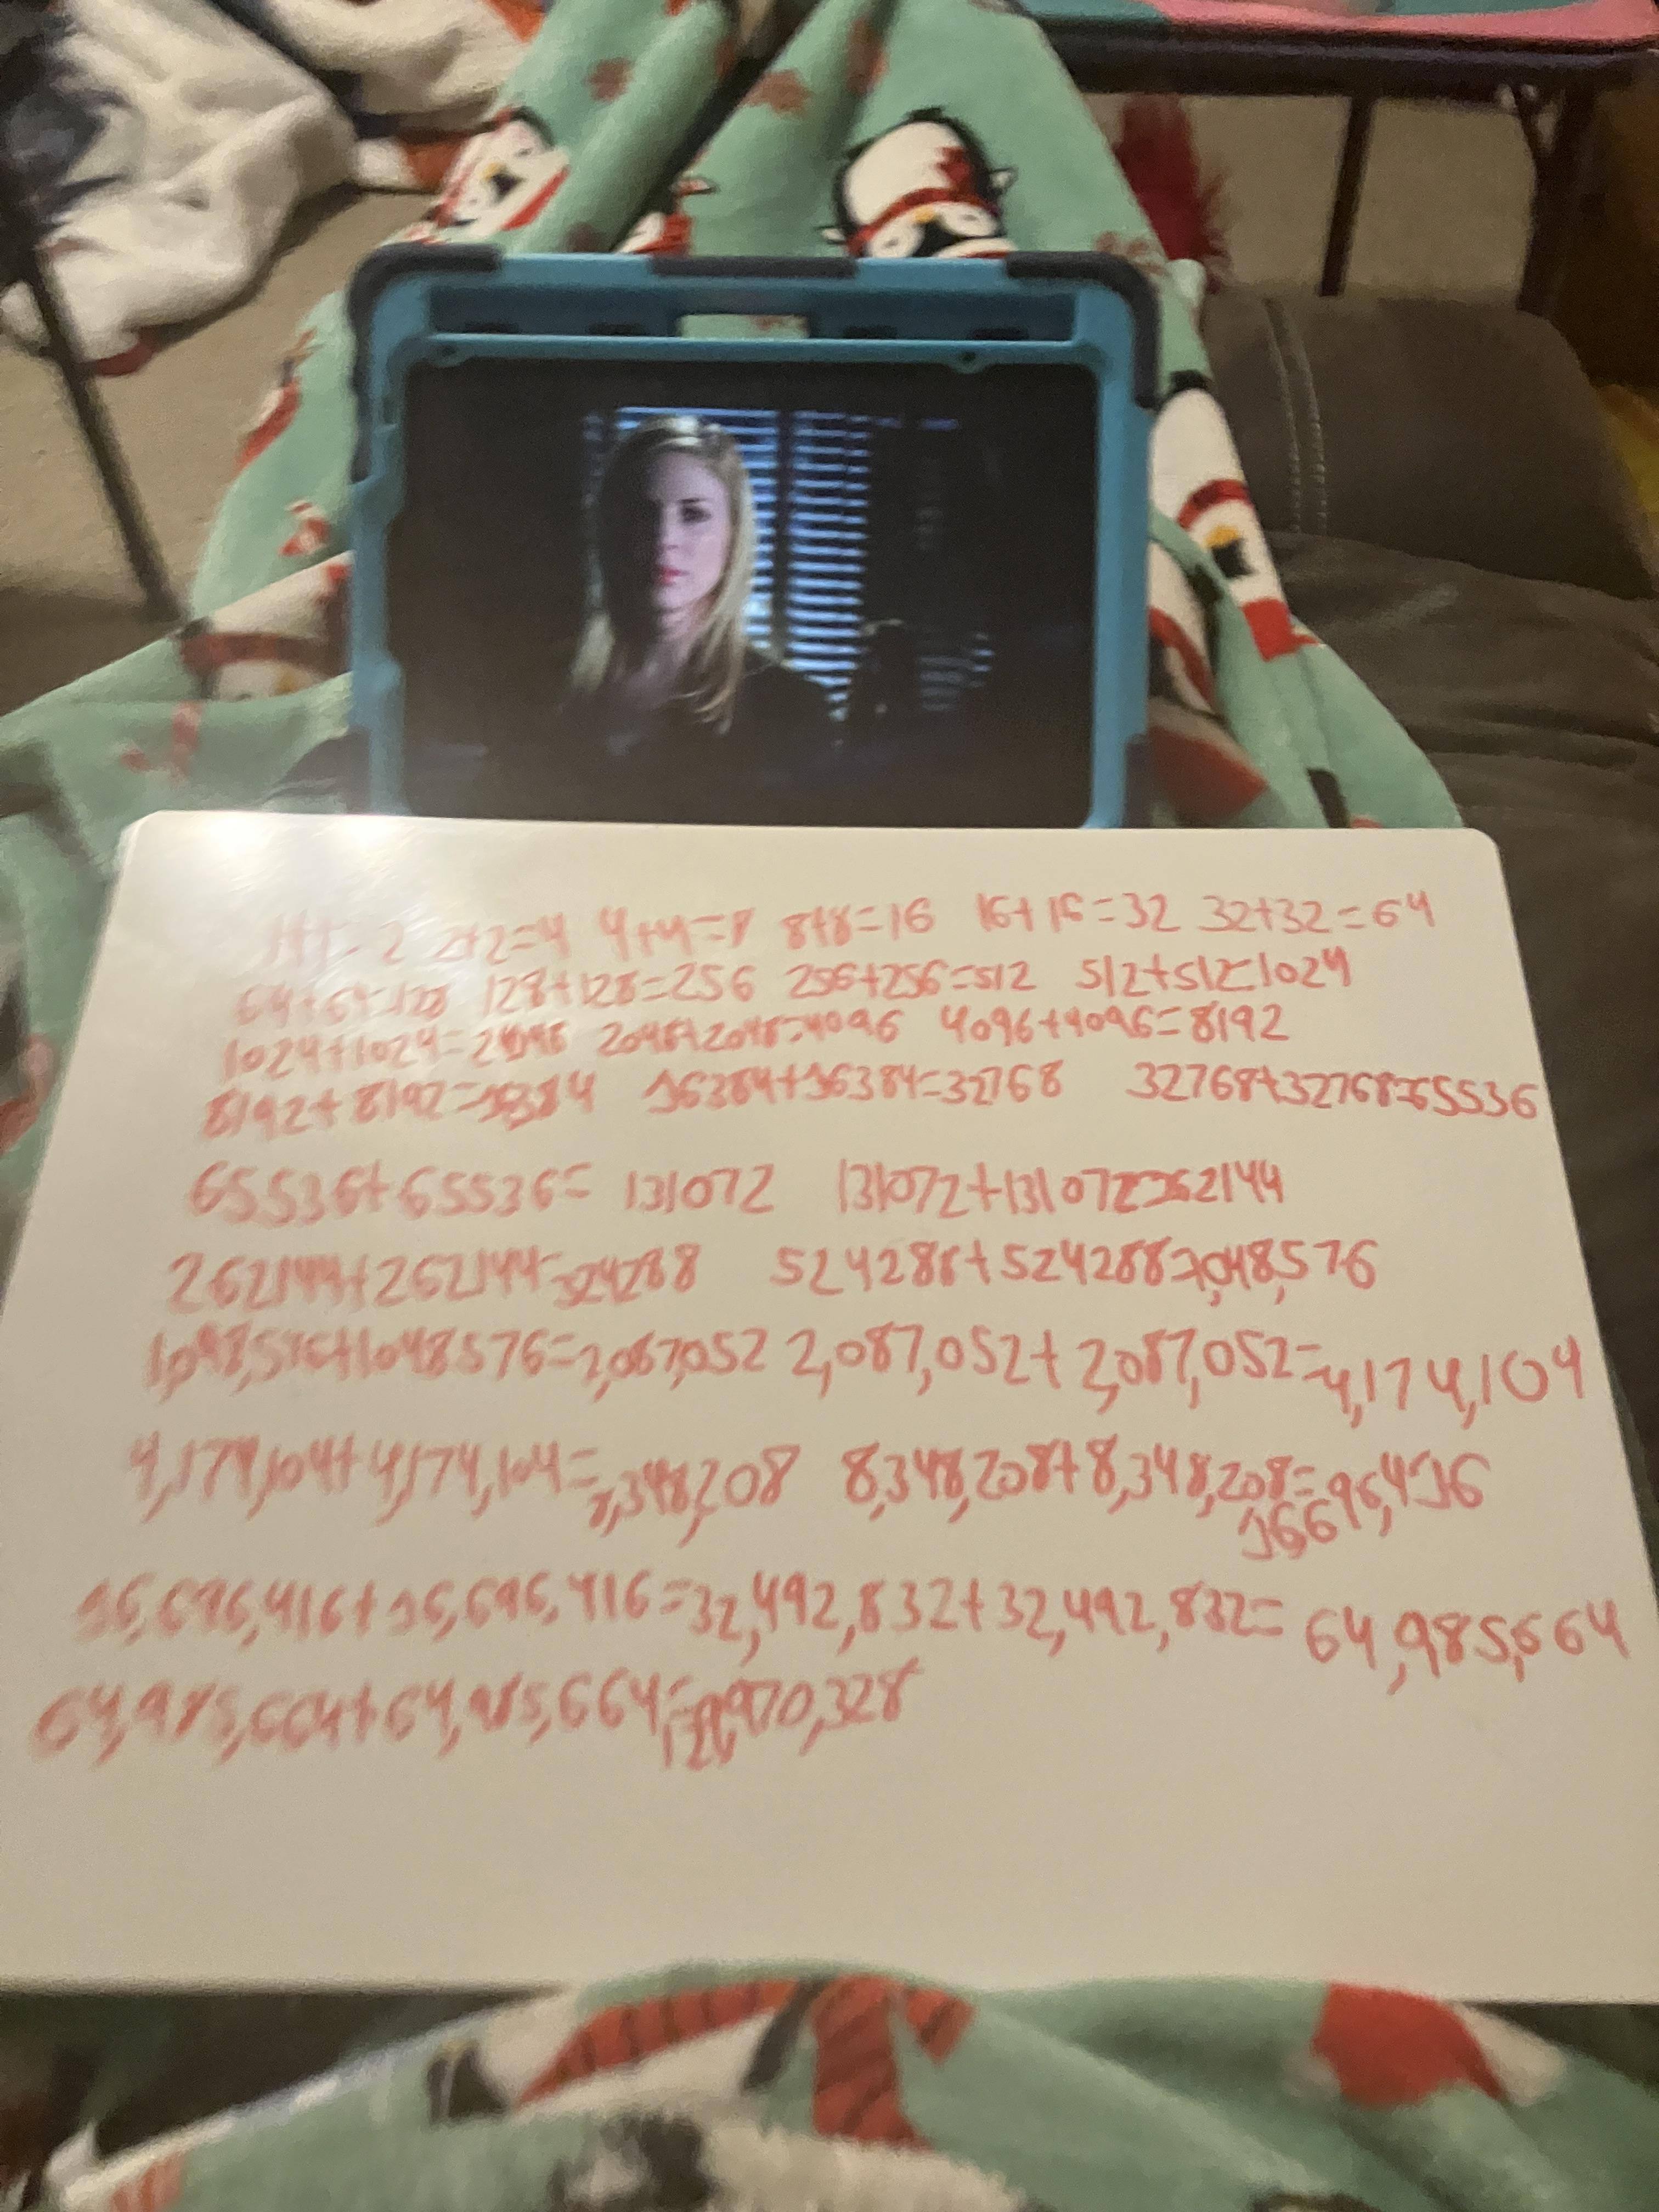 1+1=2 2+2=4 4+4=8 8+8=16 16+16=32 32+32=64
64+64=128 128+128=256 256+256=512 512+512=1024
1024+1024=2048 2048+2048=4096 4096+4096=8192
8192+8192=16384 16384+16384=32768 32768+32768=65536
65536+65536= 131072 131072+131072=262144
262144+262144=524288 524288+524288=1,048,576
1,048,576+1048576=2,087,052 2,087,052+2,087,052=4,174,104
4,174,104+4,174,104=8,348,208 8,348,208+8,348,208=16,696,416
16,696,416+16,696,416=32,492,832+32,492,832= 64,985,664
64,985,664+64,985,664=128,970,328